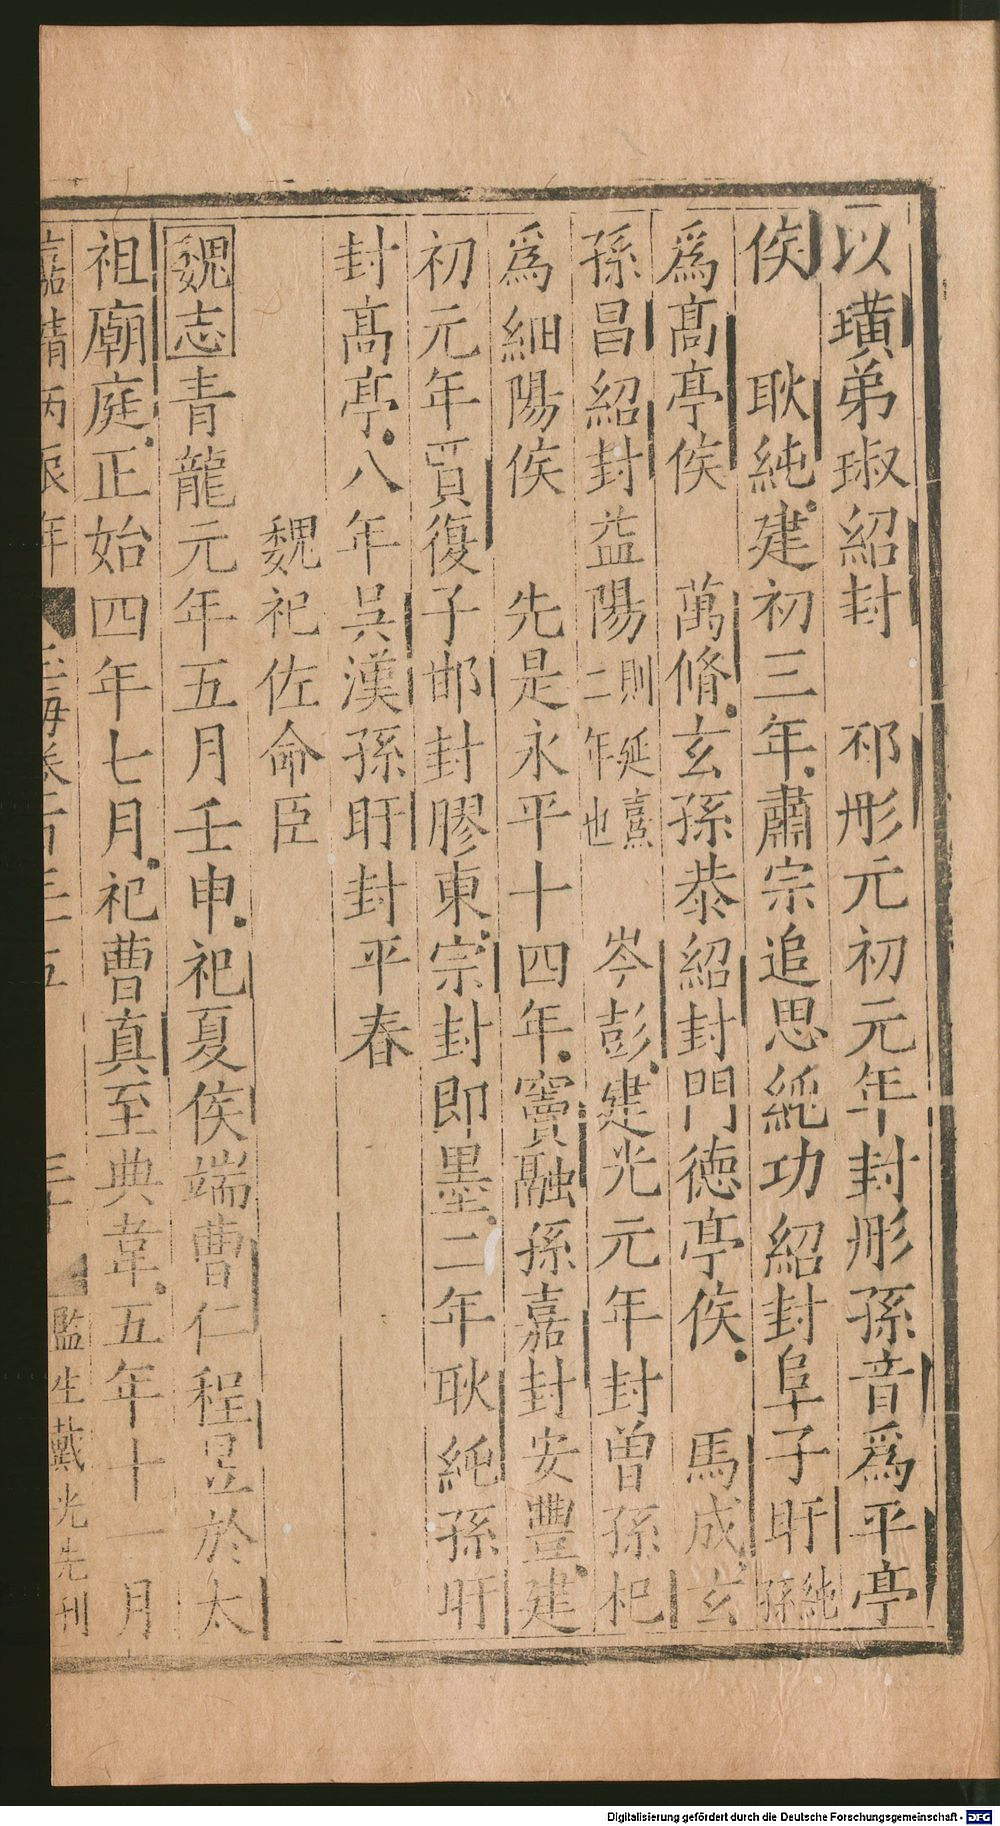 以璜弟琡紹封　邳彤元初元年封彤孫音爲平亭
侯　耿純建初三年肅宗追思純功紹封阜子盱純孫
爲髙亭侯　萬脩玄孫恭紹封門德亭侯　馬成玄
孫昌紹封益陽則延熹二年也　岑彭建光元年封曽孫杞
爲細陽侯　先是永平十四年竇融孫嘉封安豐建
初元年賈復子邯封膠東宗封即墨二年耿純孫盱
封髙亭八年吳漢孫盱封平春
魏祀佐命臣
魏志青龍元年五月壬申祀夏侯端曹仁程昱於太
祖廟庭正始四年七月祀曹真至典韋五年十一月
嘉靖丙辰年　玉海卷百三五　三十　監生戴光先刊
Digitalisierung gefördert durch die Deutsche Forschungsgemeinschaft - DFG